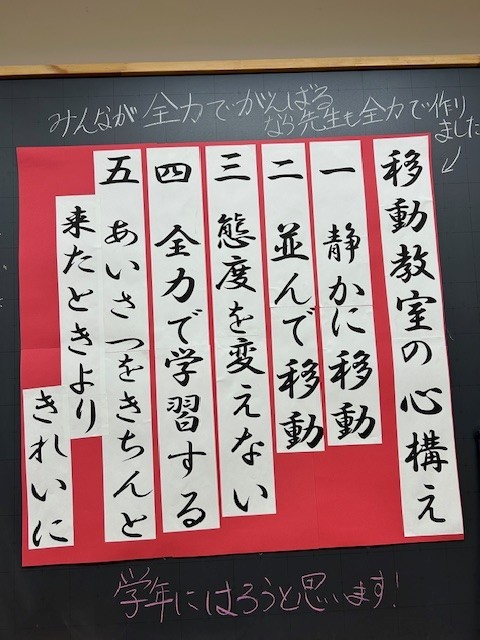 みんなが全力でがんばる
なら先生も全力で作り
ました
移動教室の心構え
一 静かに移動
二 並んで移動
三 態度を変えない
四 全力で学習する
五 あいさつをきちんと
来たときより
きれいに
学年にはろうと思います!